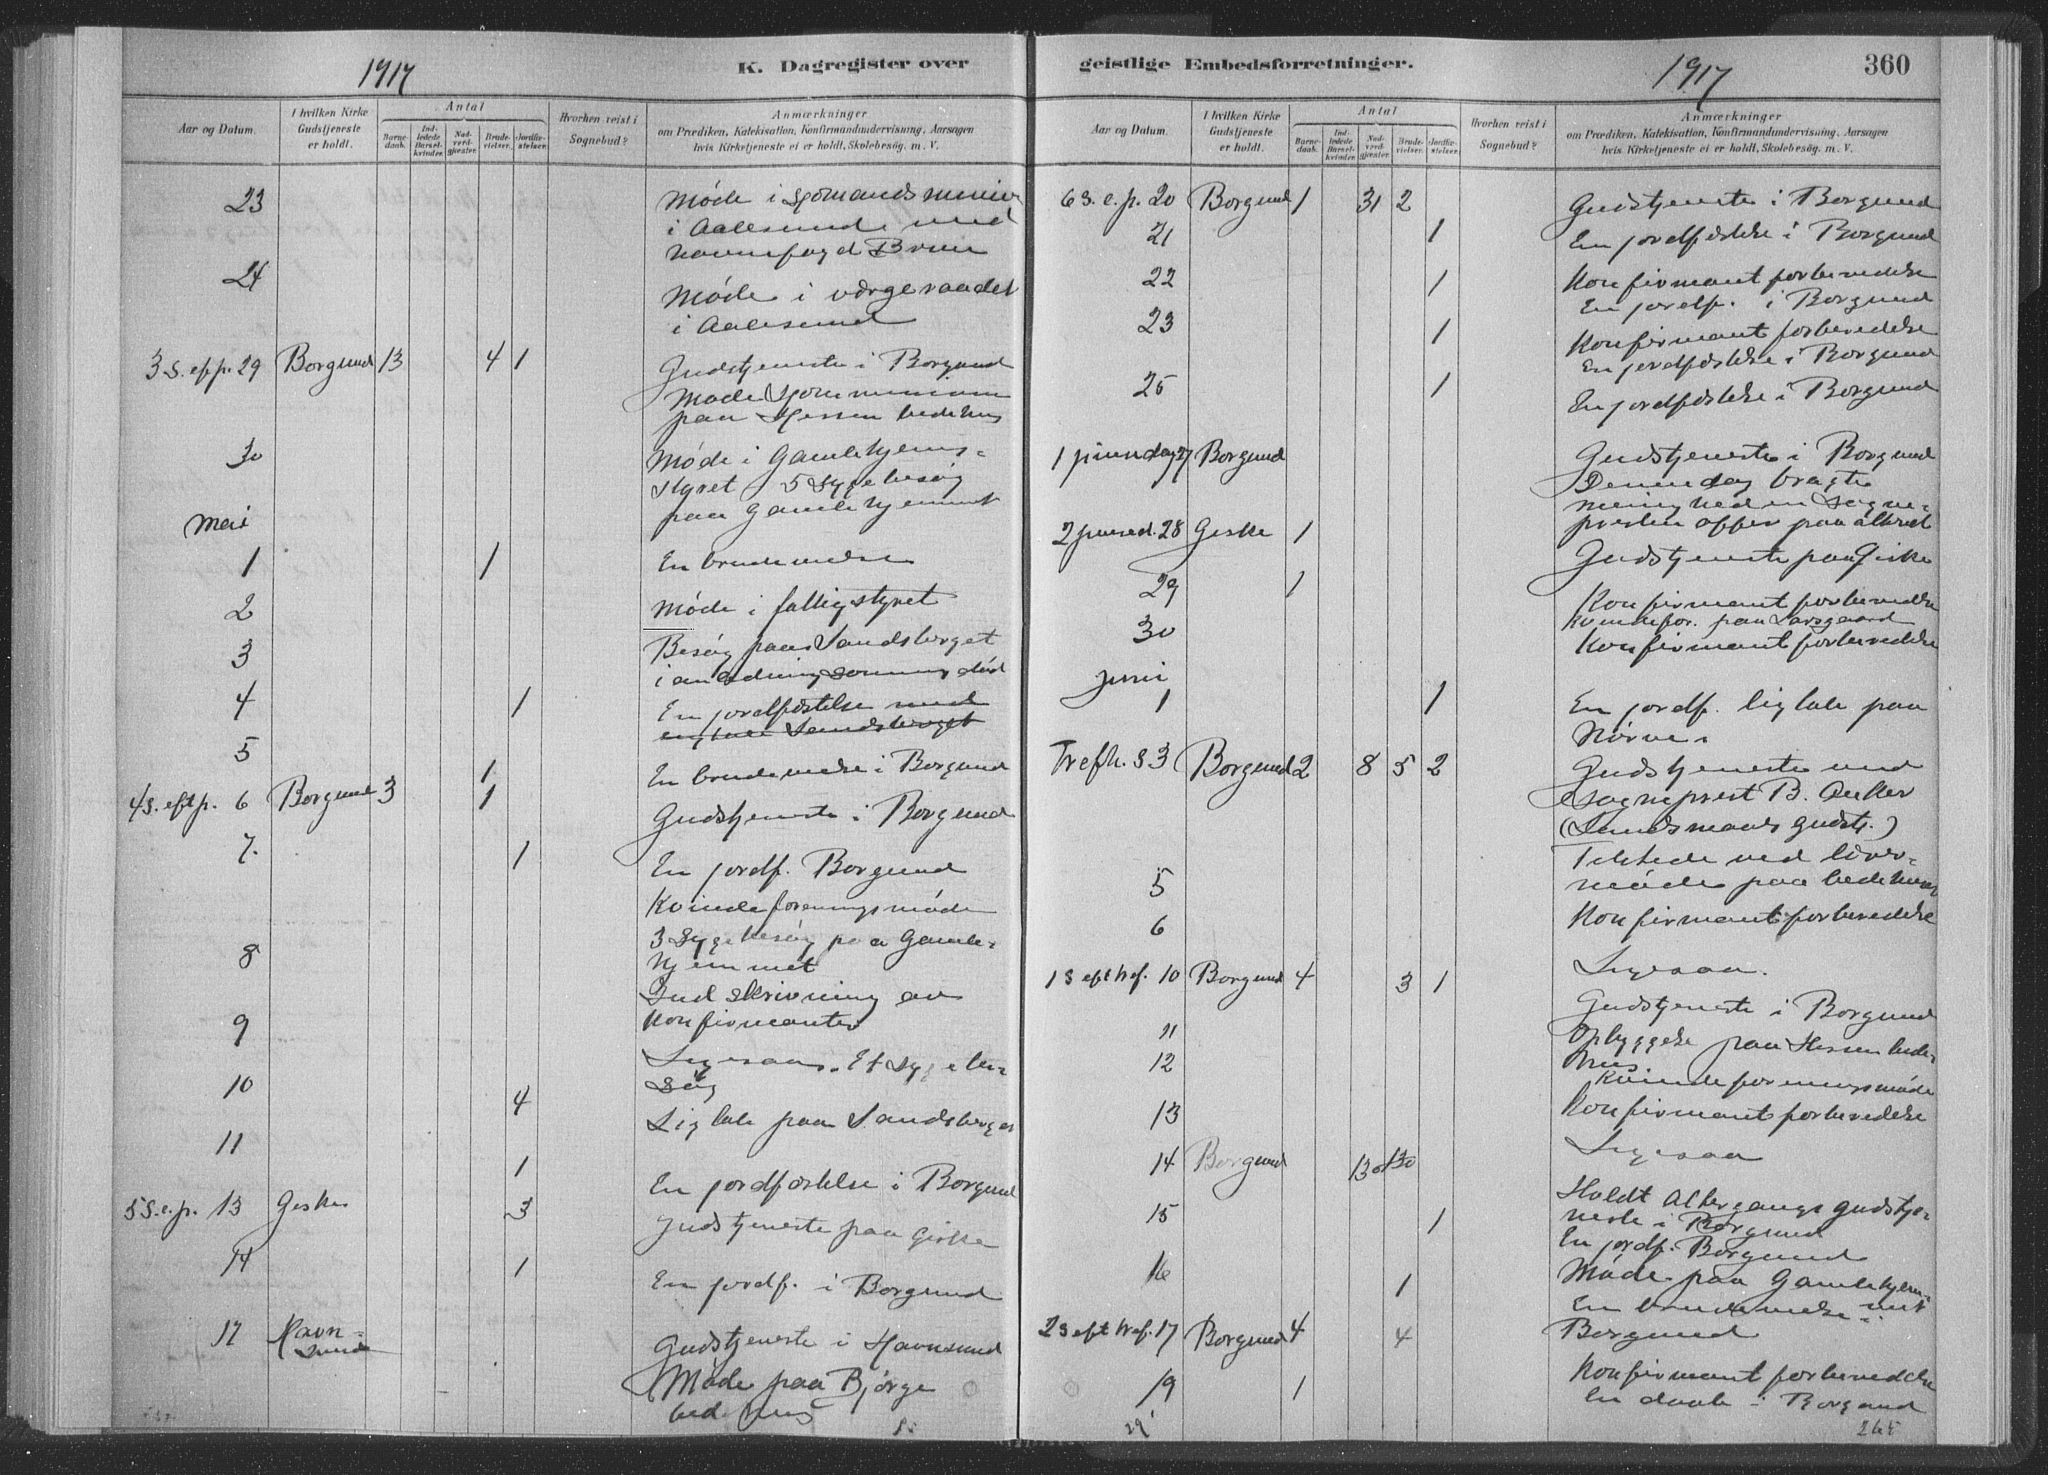 1917
K. Dagregister over
Aar og Datum.
I hvilken Kirke
Gudstjeneste
er holdt.
Antal
Barne-
daab.
Ind-
ledede
Barsel-
kvinder.
Nad-
verd-
gjæster.
Brude-
vielser.
Jordfæ-
stelser.
Hvorhen reist i
Sognebud?
Anmærkninger
om Prædiken, Katekisation, Konfirmandundervisning, Aarsagen
hvis Kirketjeneste ei er holdt, Skolebesög. m. V.
23 Møde i Sjømandsmission
i Aalesund med
havnefogd Bruun
24 Møde i værgeraadet
i Aalesund
3 s. ef p. 29 Borgund 13 4 1 Gudstjeneste i Borgund
Møde
paa Hessen bedehus
30 Møde i Gamlehjems-
styret 5 Sygebesøg
paa Gamlehjemmet
Mai
1 1 En brudevielse
2 Møde i fattigstyret
3 Besøg paa Sandsberget
i anledning
4 1 En jordfæstelse med
Sandsberget
5 1 En brudevielse i Borgund
4 s. eft p. 6 Borgund 3 1 Gudstjeneste i Borgund
7. 1 En jordf. Borgund
Kvindeforeningsmøde
3 Sygebesøg paa Gamle-
8 hjemmet
Indskrivning av
9 Konfirmanter
Et Sygebe-
10 søg
4 Ligtale paa Sandsberget
11
1 En jordfæstelse i Borgund
5 S. e. p. 13 Geske 3 Gudstjeneste paa Giske
14 1 En jordf. i Borgund
17 Havn-
sund Gudstjeneste i Havnsund
Møde paa Bjørge
bedehus
geistlige Embedsforretninger.
1917
360
Aar og Datum.
I hvilken Kirke
Gudstjeneste
er holdt.
Antal
Barne-
daab.
Ind-
ledede
Barsel-
kvinder.
Nad-
verd-
gjæster.
Brude-
vielser.
Jordfæ-
stelser.
Hvorhen reist i
Sognebud?
Anmærkninger
om Prædiken, Katekisation, Konfirmandundervisning, Aarsagen
hvis Kirketjeneste ei er holdt, Skolebesög. m. V.
6 s. e. p. 20 Borgund 1 31 2 Gudstjeneste i Borgund
21 1 En jordfæstelse i Borgund
22 1 Konfirmantforberedelse
En jordf. i Borgund
23 1 Konfirmantforberedelse
En jordfæstelse i Borgund
25 1 En jordfæstelse i Borgund
1 pinsedag 27 Borgund Gudstjeneste i Borgund
Denne dag bragte
menigheden Sogne-
presten offer paa altret
2 pinsed. 28 Geske 1 Gudstjeneste paa Giske
29 1 Konfirmantforberedelse
Kvindefor. paa Larsgaard
30 Konfirmantforberedelse
Juni
1 1 En jordf. ligtale paa
Nørve
Trefh. s 3 Borgund 2 8 5 2 Gudstjeneste ved
sogneprest B. Anker
(Landsmaals gudstj.)
Tilstede ved
5 møde paa bedehuset
6 Konfirmantforberedelse
1 s eft tref. 10 Borgund 4 3 1
Gudstjeneste i Borgund
11 Opbyggelse paa Hessen bede-
12 hus
Kvindeforeningsmøde
13 Konfirmantforberedelse
14 Borgund 130 130
Holdt Altergangsgudstje-
15 1 neste i Borgund
En jordf. Borgund
16 1 Møde paa Gamlehjem-
met
En brudevielse i
2 s eft tref. 17 Borgund 4 4 Borgund
Konfirmantforberedelse
19 1 En daab i Borgund
265